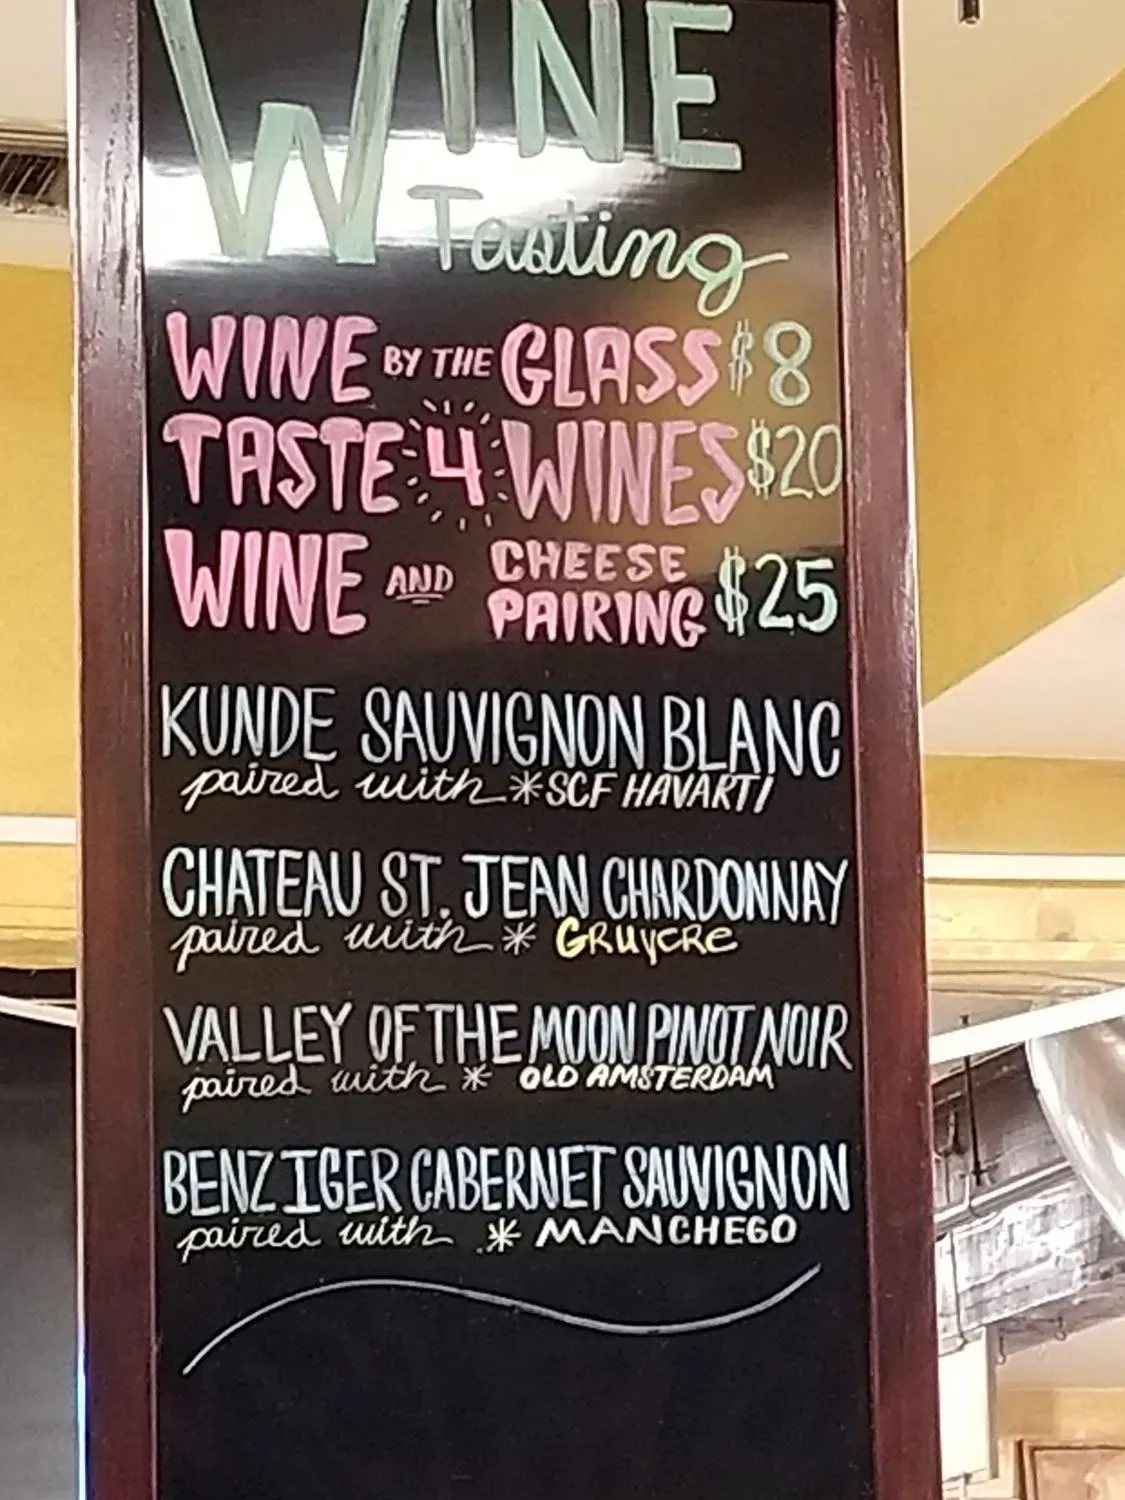 WINE
Tasting
WINE BY THE GLASS $8
TASTE 4 WINES $20
WINE AND CHEESE PAIRING $25
KUNDE SAUVIGNON BLANC
paired with * SCF HAVARTI
CHATEAU ST. JEAN CHARDONNAY
paired with * GRUYERE
VALLEY OF THE MOON PINOT NOIR
paired with * OLD AMSTERDAM
BENZIGER CABERNET SAUVIGNON
paired with * MANCHEGO